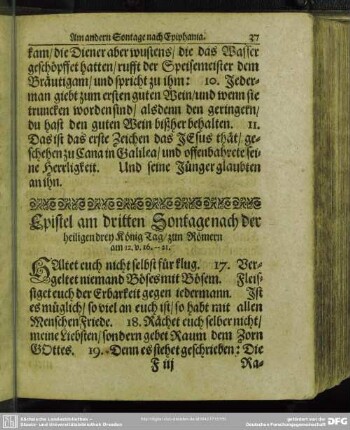 Am andern Sontage nach Epiphania. 37
kam/ die Diener aber wustens/ die das Wasser
geschöpffet hatten/ rufft der Speisemeister dem
Bräutigam/ und spricht zu ihm: 10. Jeder-
man giebt zum ersten guten Wein/ und wenn sie
truncken worden sind/ alsdenn den geringern/
du hast den guten Wein bißher behalten. 11.
Das ist das erste Zeichen das JEsus thät/ ge-
schehen zu Cana in Galilea/ und offenbahrete sei-
ne Herrligkeit. Und seine Jünger glaubten
an ihn.
Epistel am dritten Sontage nach der
heiligen drey König Tag/ zun Römern
am 12. v. 16. - 21.
HAltet euch nicht selbst für klug. 17. Ver-
geltet niemand Böses mit Bösem. Fleis-
siget euch der Erbarkeit gegen iedermann. Ist
es müglich/ so viel an euch ist/ so habt mit allen
Menschen Friede. 18. Rächet euch selber nicht/
meine Liebsten/ sondern gebet Raum dem Zorn
GOttes. 19. Denn es stehet geschrieben: Die
F iij Ra-